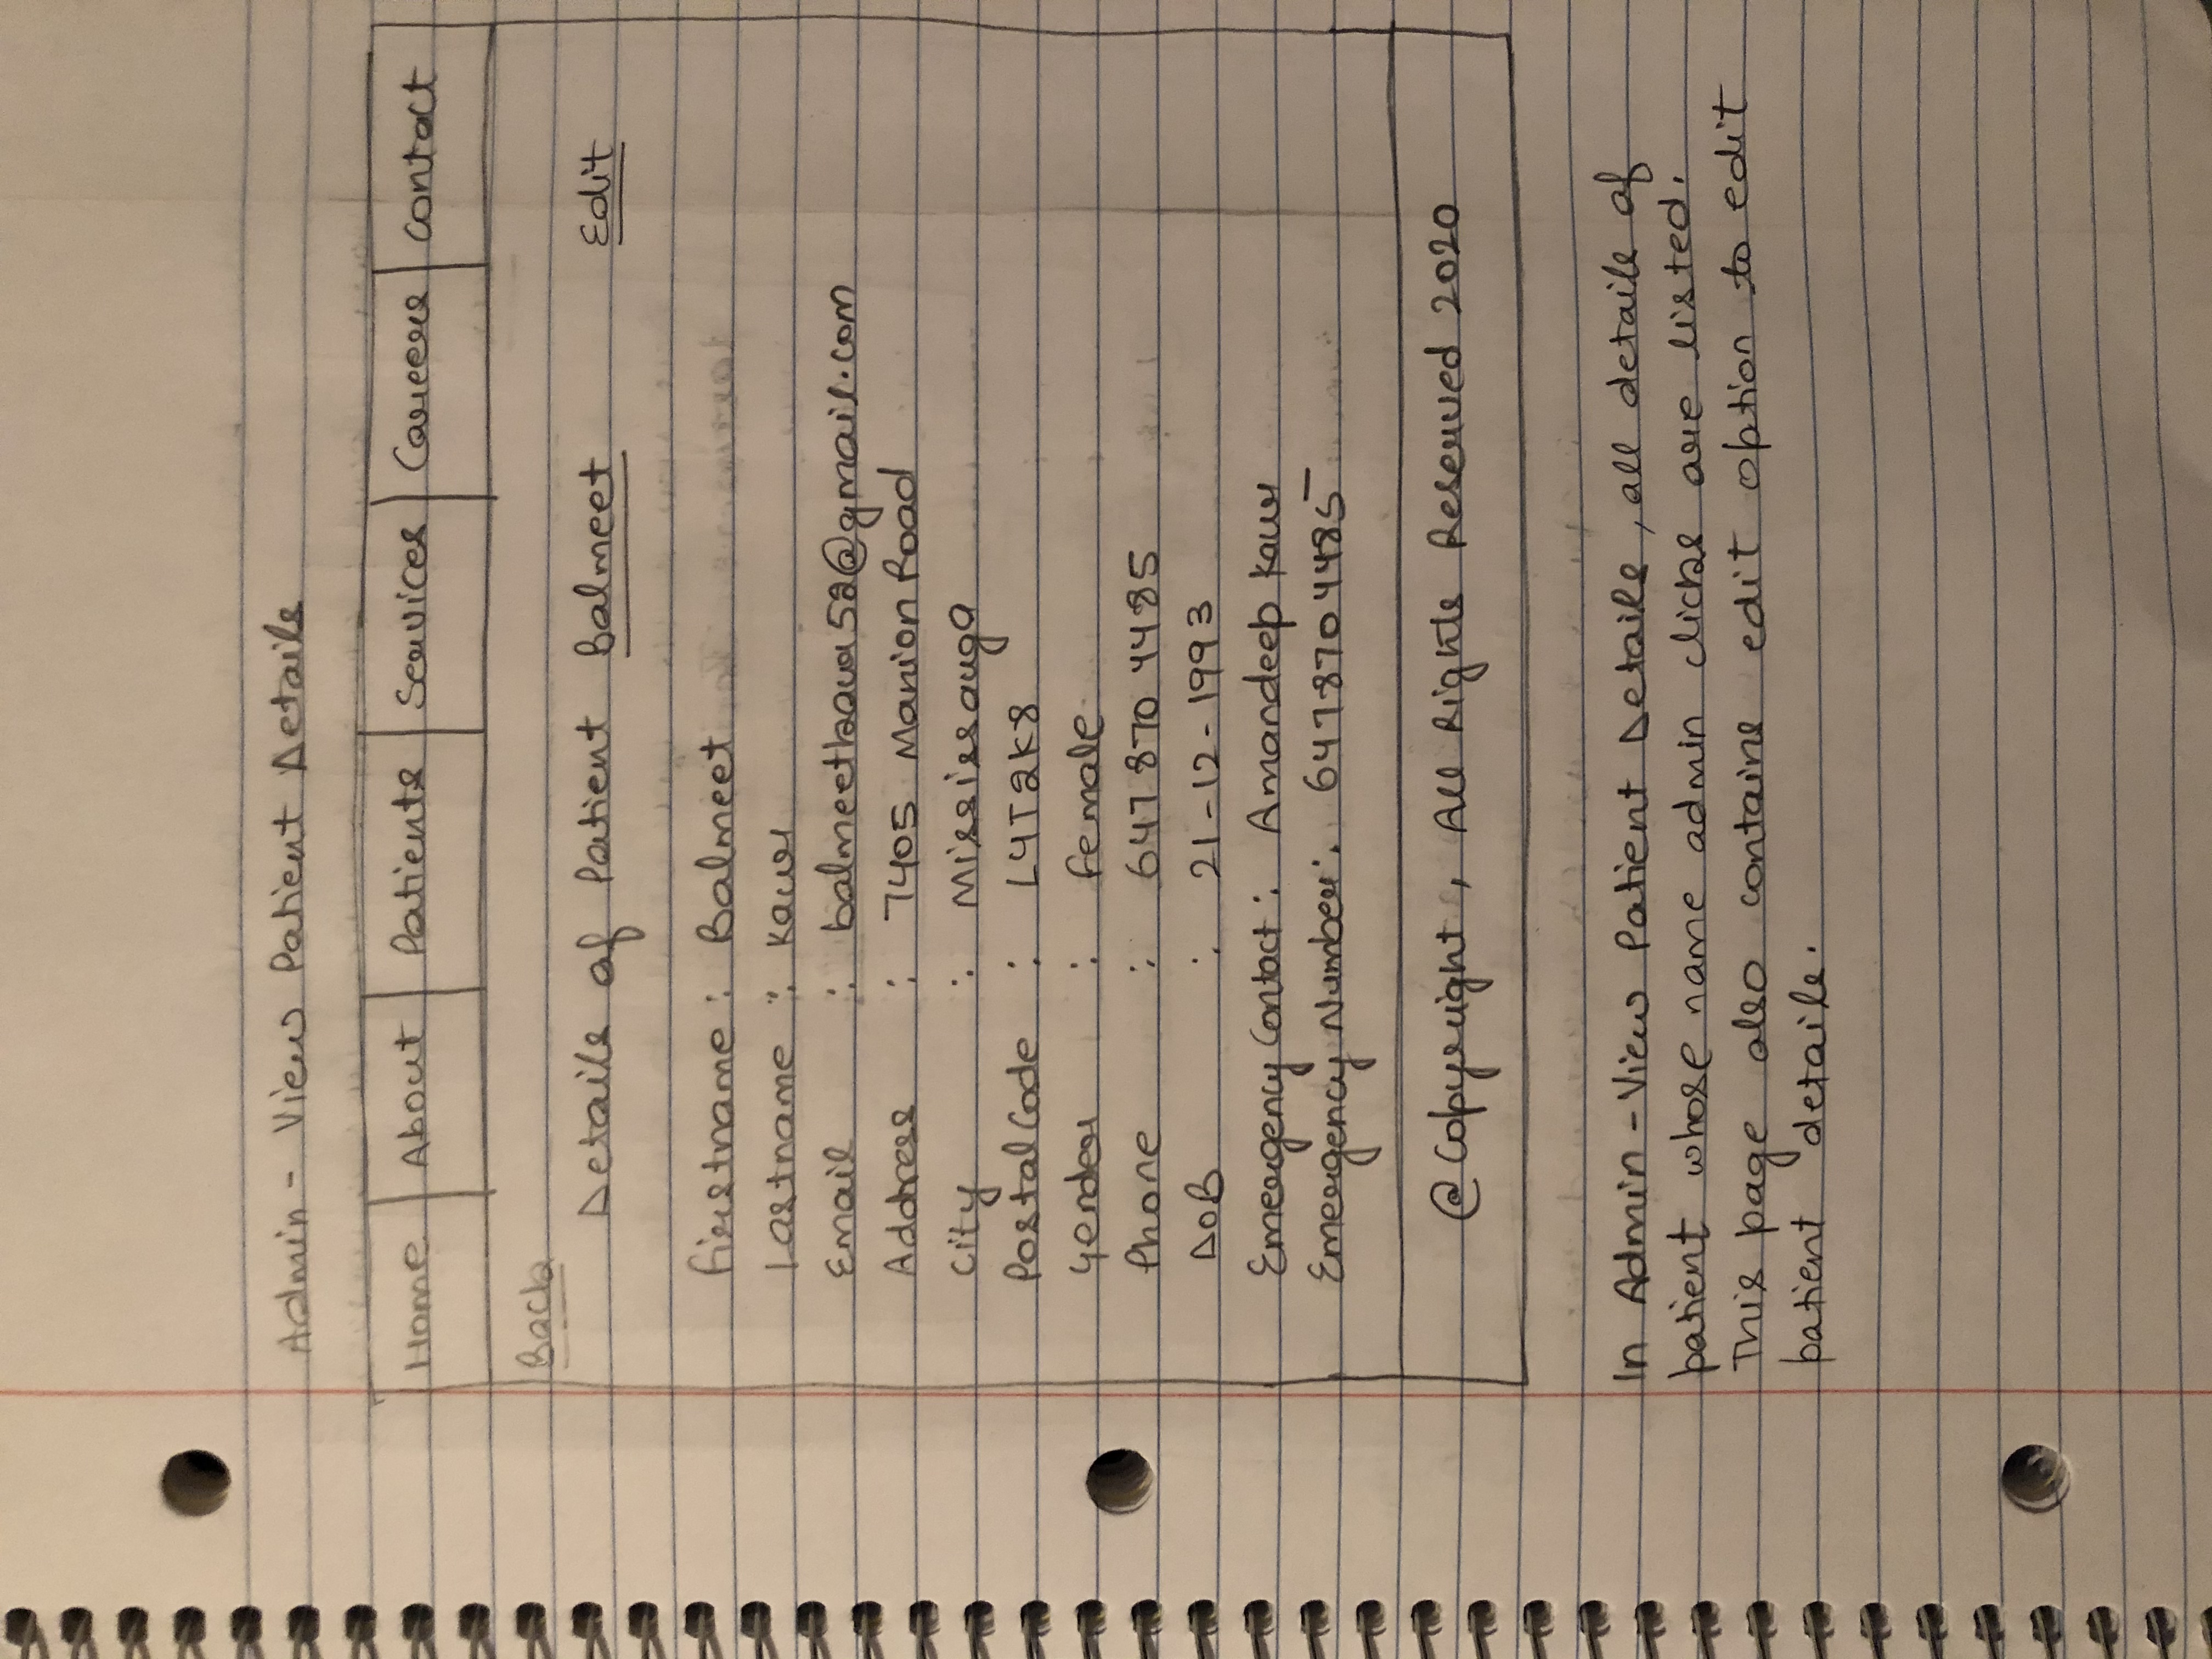 Admin - View Patient Details
Home About Patients Services Careers Contact
Back
Details of Patient Balmeet Edit
Firstname : Balmeet
Lastname : Kaur
Email : balmeetkaur52@gmail.com
Address : 7405 Manion Road
City : Mississauga
Postal Code : L4T2K8
Gender : Female
Phone : 647 870 4485
DOB : 21-12-1993
Emergency Contact : Amandeep Kaur
Emergency Number : 6478704485
@Copyright , All Rights Reserved 2020
In Admin - View Patient Details, all details of
patient whose name admin clicks are listed.
This page also contains edit option to edit
patient details.